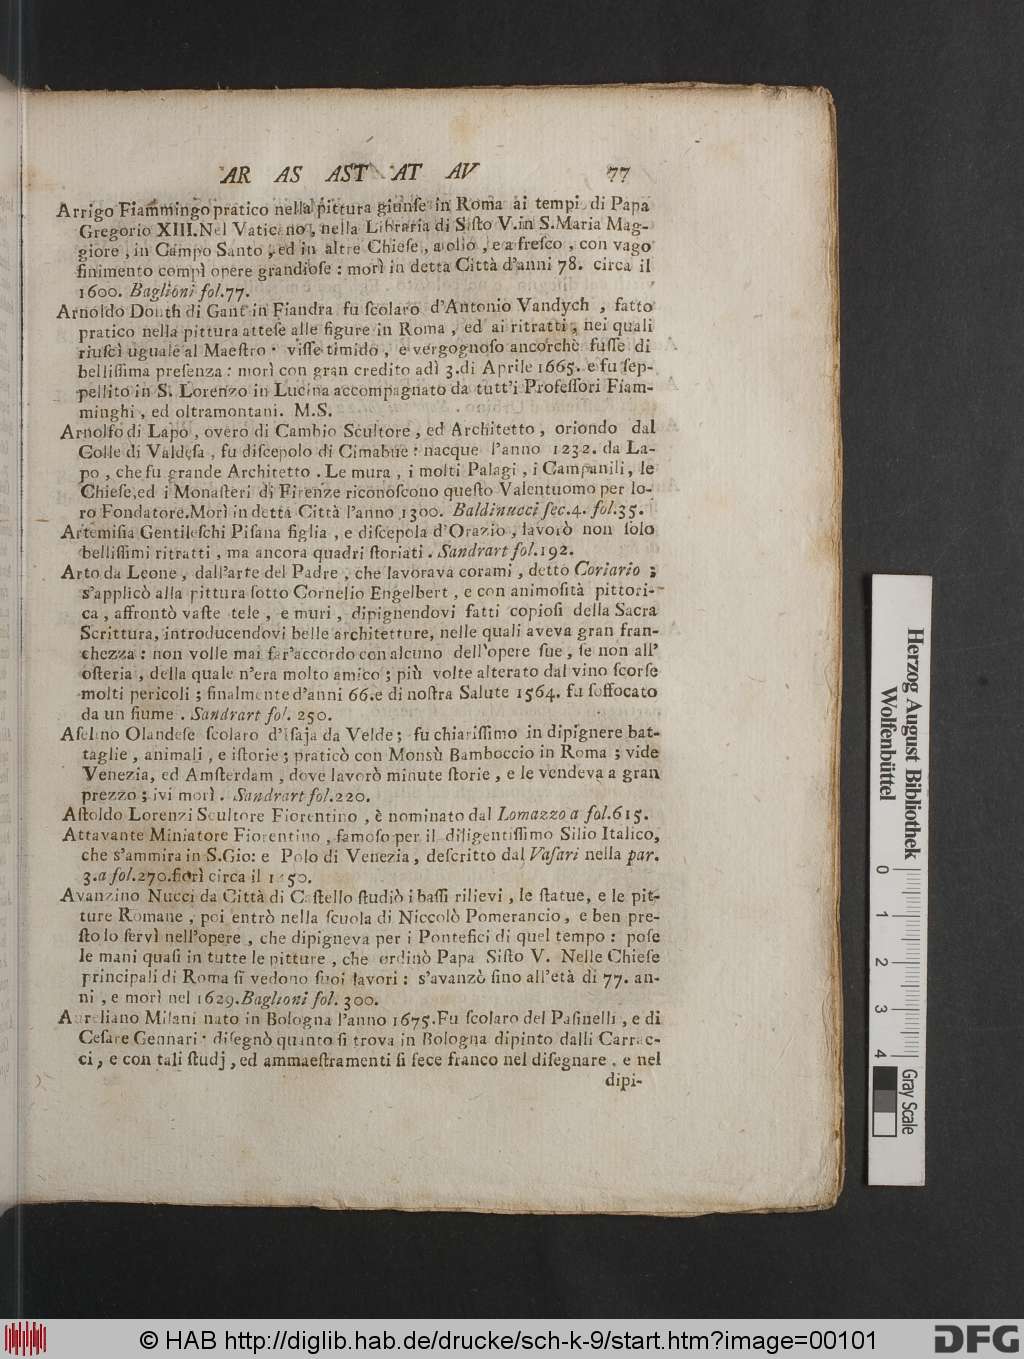 AR AS AST AT AV 77
Arrigo Fiammingo pratico nella pittura giunſe in Roma ai tempi di Papa
Gregorio XIII. Nel Vaticano, nella Libraria di Siſto V. in S. Maria Mag-
giore, in Campo Santo, ed in altre Chieſe, a olio, e a freſco, con vago
finimento compì opere grandioſe: morì in detta Città d'anni 78. circa il
1600. Baglioni fol. 77.
Arnoldo Douth di Gant in Fiandra fu ſcolaro d'Antonio Vandych, fatto
pratico nella pittura atteſe alle figure in Roma, ed ai ritratti, nei quali
riuſcì uguale al Maeſtro. viſſe timido, e vergognoſo ancorchè fuſſe di
belliſſima preſenza: morì con gran credito adì 3. di Aprile 1665. e fu ſep-
pellito in S. Lorenzo in Lucina accompagnato da tutt'i Profeſſori Fiam-
minghi, ed oltramontani. M.S.
Arnolfo di Lapo, overo di Cambio Scultore, ed Architetto, oriondo dal
Colle di Valdeſa, fu diſcepolo di Cimabue: nacque l'anno 1232. da La-
po, che fu grande Architetto. Le mura, i molti Palagi, i Campanili, le
Chieſe, ed i Monaſteri di Firenze riconoſcono queſto Valentuomo per lo-
ro Fondatore. Morì in detta Città l'anno 1300. Baldinucci ſec. 4. fol. 35.
Artemiſia Gentileſchi Piſana figlia, e diſcepola d'Orazio, lavorò non ſolo
belliſſimi ritratti, ma ancora quadri ſtoriati. Sandrart fol. 192.
Arto da Leone, dall'arte del Padre, che lavorava corami, detto Coriario;
s'applicò alla pittura ſotto Cornelio Engelbert, e con animoſità pittori-
ca, affrontò vaſte tele, e muri, dipignendovi fatti copioſi della Sacra
Scrittura, introducendovi belle architetture, nelle quali aveva gran fran-
chezza: non volle mai far'accordo con alcuno dell'opere ſue, ſe non all'
oſteria, della quale n'era molto amico; più volte alterato dal vino ſcorſe
molti pericoli; finalmente d'anni 66. e di noſtra Salute 1564. fu ſoffocato
da un fiume. Sandrart fol. 250.
Aſelino Olandeſe ſcolaro d'Iſaja da Velde; fu chiariſſimo in dipignere bat-
taglie, animali, e iſtorie; praticò con Monsù Bamboccio in Roma; vide
Venezia, ed Amſterdam, dove lavorò minute ſtorie, e le vendeva a gran
prezzo; ivi morì. Sandrart fol. 220.
Aſtoldo Lorenzi Scultore Fiorentino, è nominato dal Lomazzo a fol. 615.
Attavante Miniatore Fiorentino, famoſo per il diligentiſſimo Silio Italico,
che s'ammira in S. Gio: e Polo di Venezia, deſcritto dal Vaſari nella par.
3. a fol. 270. fiorì circa il
Avanzino Nucci da Città di Caſtello ſtudiò i baſſi rilievi, le ſtatue, e le pit-
ture Romane, poi entrò nella ſcuola di Niccolò Pomerancio, e ben pre-
ſto lo ſervì nell'opere, che dipigneva per i Pontefici di quel tempo: poſe
le mani quaſi in tutte le pitture, che ordinò Papa Siſto V. Nelle Chieſe
principali di Roma ſi vedono ſuoi lavori: s'avanzò ſino all'età di 77. an-
ni, e morì nel 1629. Baglioni fol. 300.
Aureliano Milani nato in Bologna l'anno 1675. Fu ſcolaro del Paſinelli, e di
Ceſare Gennari: diſegnò quanto ſi trova in Bologna dipinto dalli Carrac-
ci, e con tali ſtudj, ed ammaeſtramenti ſi fece franco nel diſegnare, e nel
dipi-
Herzog August Bibliothek
Wolfenbüttel
0 1 2 3 4
Gray Scale
© HAB http://diglib.hab.de/drucke/sch-k-9/start.htm?image=00101
DFG